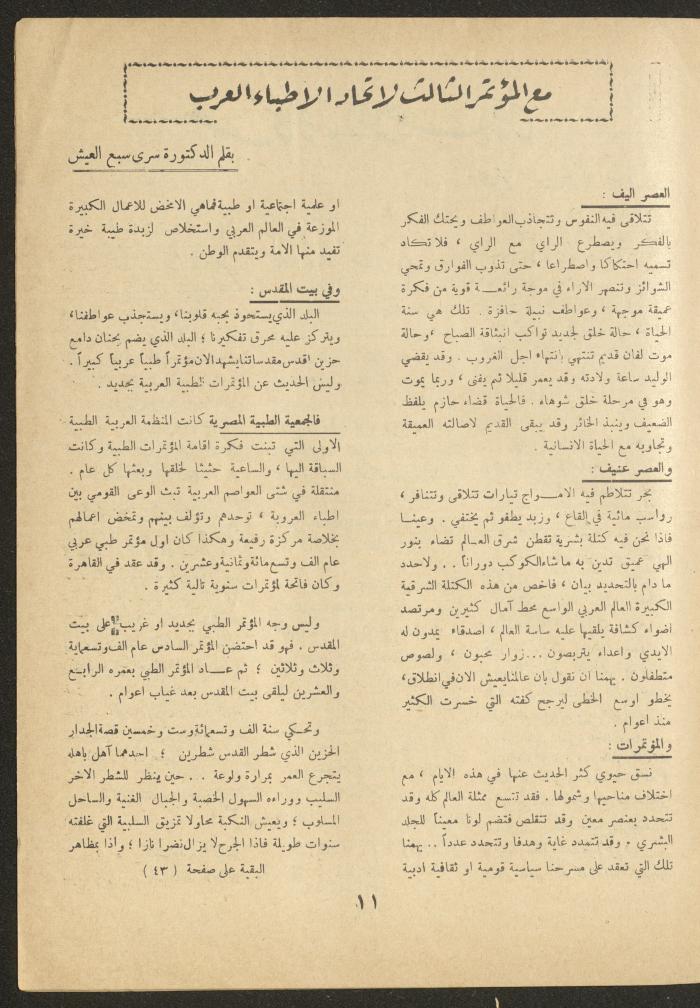 مع المؤتمر الثالث لاتحاد الاطباء العرب
بقلم الدكتورة سرى سبع العيش
العصر اليف :
تتلاقى فيه النفوس وتتجاذب العواطف ويحتك الفكر
بالفكر ويصطرع الراي مع الراي ، فلا تكاد
تسميه احتكاكا واصطراعا ، حتى تذوب الفوارق وتمحي
الشوائز وتنصهر الاراء في موجة رائعـــة قوية من فكرة
عميقة موجهة ، وعواطف نبيلة حافزة . تلك هي سنة
الحياة ، حالة خلق لجديد تواكب انبثاقة الصباح ، وحالة
موت لفان قديم تنتهي بانتهاء اجل الغروب . وقد يقضي
الوليد ساعة ولادته وقد يعمر قليلا ثم يفنى ، وربما يموت
وهو في مرحلة خلق شوهاء . فالحياة قضاء حازم يلفظ
الضعيف وينبذ الخائر وقد يبقى القديم لاصالته العميقة
وتجاوبه مع الحياة الانسانية .
والعصر عنيف :
بحر تتلاطم فيه الامـــواج تيارات تتلاقى وتتنافر ،
رواسب مائية في القاع ، وزبد يطفو ثم يختفي . وعينـا
فاذا نحن فيه كتلة بشرية تقطن شرق العـالم تضاء بنور
الهي عميق تدين به ما شاء الكوكب دوراناً . . ولاحدد
ما دام بالتحديد بيان ، فاخص من هذه الكتلة الشرقية
الكبيرة العالم العربي الواسع محط آمال كثيرين ومرتصد
اضواء كشافة يلقيها عليه ساسة العالم ، اصدقاء يمدون له
الايدي واعداء يتربصون ... زوار محبون ، ولصوص
متطفلون . يهمنا ان نقول بان عالمنا يعيش الان في انطلاق،
يخطو اوسع الخطى ليرجح كفته التي خسرت الكثير
منذ اعوام .
والمؤتمرات :
نسق حيوي كثر الحديث عنها في هذه الايام ، مع
اختلاف مناحيها وشمولها . فقد تتسع ممثلة العالم كله وقد
تتحدد بعنصر معين وقد تتقلص فتضم لونا معيناً للجلد
البشري . وقد تتمدد غاية وهدفا وتتحدد عدداً .. يهمنا
تلك التي تعقد على مسرحنا سياسية قومية او ثقافية ادبية
او علمية اجتماعية او طبية فماهي الا مخض للاعمال الكبيرة
الموزعة في العالم العربي واستخلاص لزبدة طيبة خيرة
تفيد منها الامة ويتقدم الوطن .
وفي بيت المقدس :
البلد الذي يستحوذ بحبه قلوبنا، ويستجذب عواطفنا،
ويتركز عليه محرق تفكيرنا ؛ البلد الذي يضم بحنان دامع
حزين اقدس مقدساتنا يشهد الان مؤتمراً طبياً عربياً كبيراً .
وليس الحديث عن المؤتمرات الطبية العربية بجديد .
فالجمعية الطبية المصرية كانت المنظمة العربية الطبية
الاولى التي تبنت فكرة اقامة المؤتمرات الطبية وكانت
السباقة اليها ، والساعية حثيثا لخلقها وبعثها كل عام .
منتقلة في شتى العواصم العربية تبث الوعى القومي بين
اطباء العروبة ، توحدهم وتؤلف بينهم وتمخض اعمالهم
بخلاصة مركزة رفيعة وهكذا كان اول مؤتمر طبي عربي
عام الف وتسع مائة وثمانية وعشرين . وقد عقد في القاهرة
وكان فاتحة لمؤتمرات سنوية تالية كثيرة .
وليس وجه المؤتمر الطبي بجديد او غريب على بيت
المقدس . فهو قد احتضن المؤتمر السادس عام الف وتسعماية
وثلاث وثلاثين ؛ ثم عـــاد المؤتمر الطبي بعمره الرابـع
والعشرين ليلقى بيت المقدس بعد غياب اعوام .
وتحـكي سنة الف وتسعمائة وست وخمسين قصة الجدار
الحزين الذي شطر القدس شطرين ؛ احدهما آهل باهله
يتجرع العمر بمرارة ولوعة . . حين ينظر للشطر الاخر
السليب ووراءه السهول الخصبة والجبال الغنية والساحل
المسلوب ؛ ويعيش النكبة محاولا تمزيق السلبية التي غلفته
سنوات طويلة فاذا الجرح لا يزال نضرا نازا ؛ واذا بمظاهر
البقية على صفحة ( ٤٣ )
١١